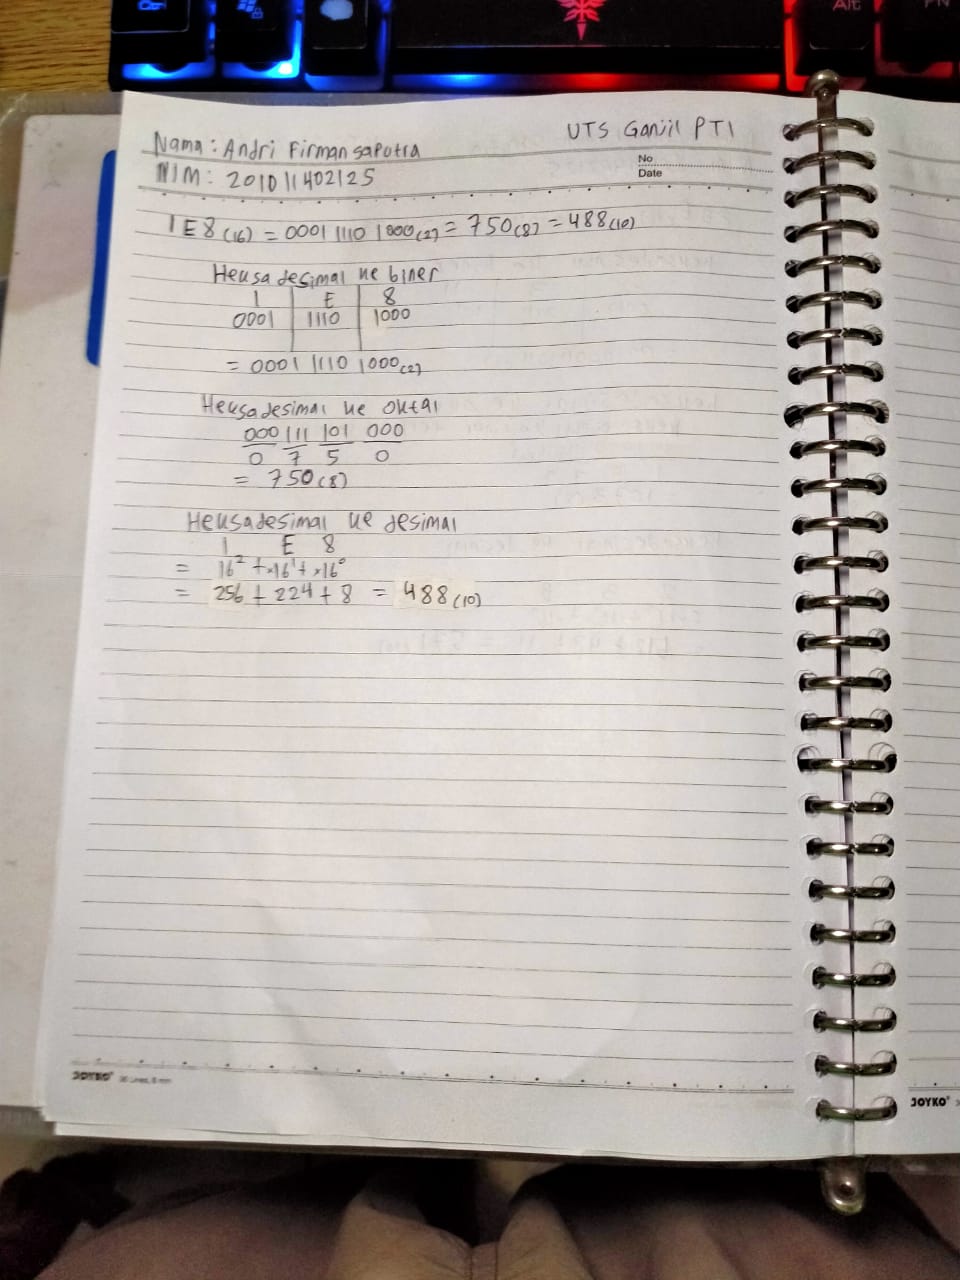 Ctrl
Alt
FN
UTS Ganjil PTI
Nama : Andri Firman saputra
NIM : 201011402125
No
Date
1E8 (16) = 0001 1110 1000 (2) = 750 (8) = 488 (10)
Heksa desimal ke biner
1 E 8
0001 1110 1000
= 0001 1110 1000 (2)
Heksa desimal ke oktal
000 111 101 000
0 7 5 0
= 750 (8)
Heksadesimal ke desimal
1 E 8
= 16² + ×16¹ + ×16⁰
= 256 + 224 + 8 = 488 (10)
JOYKO
JOYKO